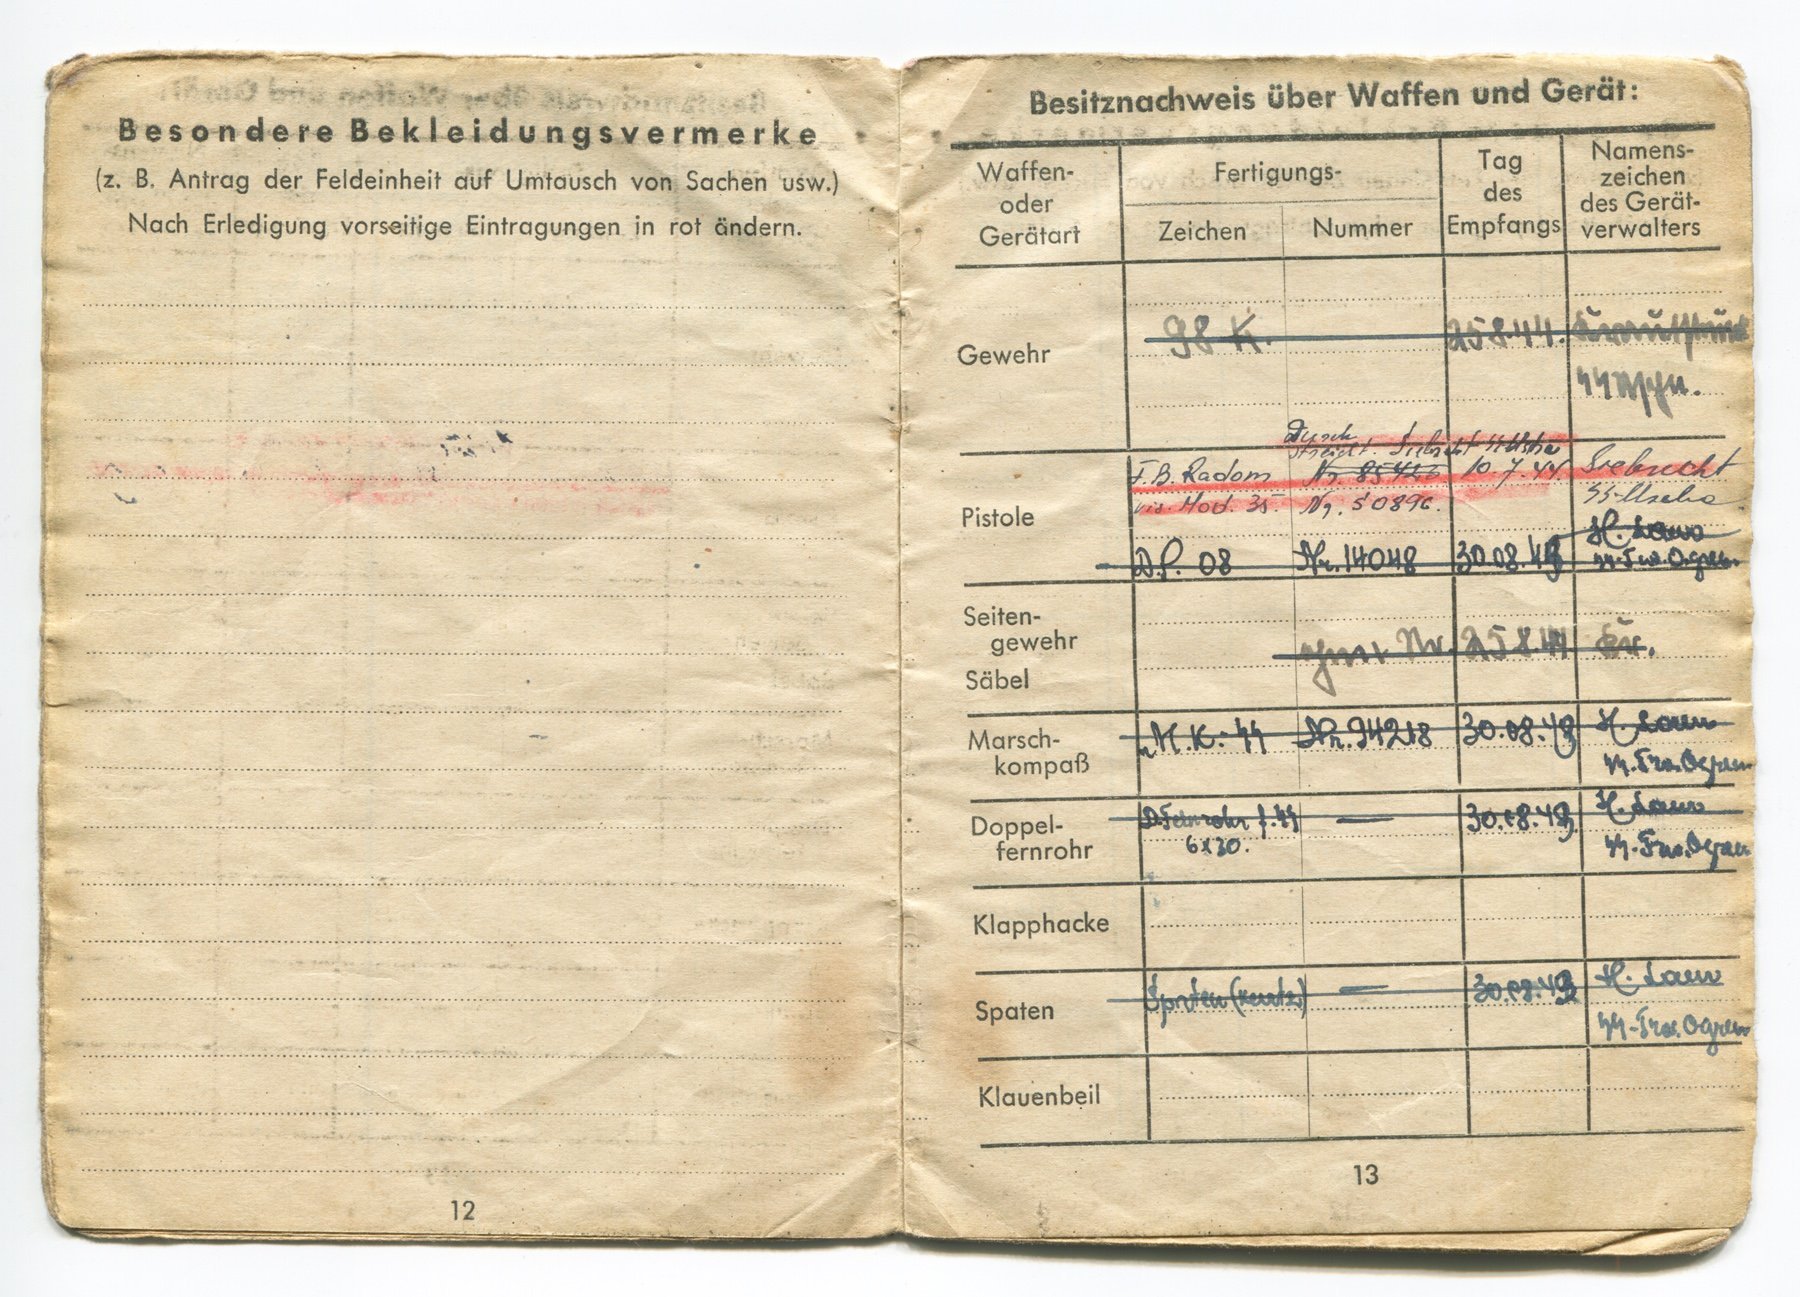 Besondere Bekleidungsvermerke
(z. B. Antrag der Feldeinheit auf Umtausch von Sachen usw.)
Nach Erledigung vorseitige Eintragungen in rot ändern.
12
Besitznachweis über Waffen und Gerät:
Waffen-
oder
Gerätart
Fertigungs-
Zeichen
Nummer
Tag
des
Empfangs
Namens-
zeichen
des Gerät-
verwalters
Gewehr
98 K.
25.8.44.
Pistole
F.B. Radom Nr. 85426 10.7.44.
vis. Mod. 35. Nr. 50896.
D.P. 08 Nr. 14048 30.08.43
H. Lauw
Seiten-
gewehr
Säbel
Nr. 25.8.44
Marsch-
kompaß
M.K.-ϟϟ Nr. 94218 30.08.43 H. Lauw
Doppel-
fernrohr
D.Fernrohr f.ϟϟ — 30.08.43 H. Lauw
6x30.
Klapphacke
Spaten
Spaten (kurtz) — 30.08.43 H. Lauw
Klauenbeil
13